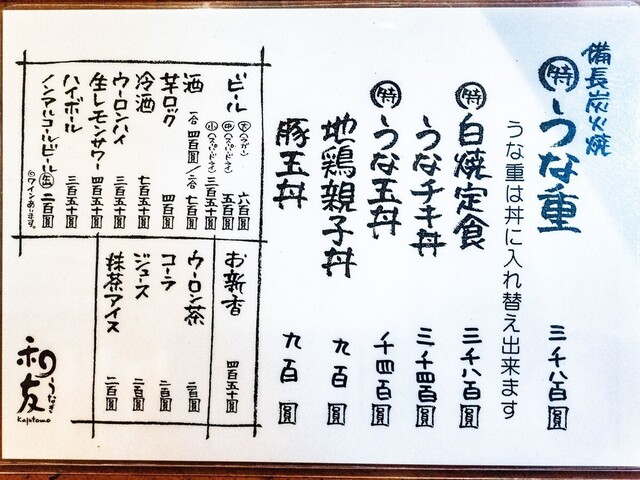 備長炭火焼
特 うな重 三千八百圓
うな重は丼に入れ替え出来ます
特 白焼定食 三千八百圓
うなチキ丼 三千四百圓
特 うな玉丼 千四百圓
地鶏親子丼 九百圓
豚玉丼 九百圓
ビール 大(スーパードライ) 六百圓
中(スーパードライ) 五百圓
小(スーパードライ) 三百五十圓
酒 一合 四百圓/二合 七百圓
芋ロック 四百圓
冷酒 七百五十圓
ウーロンハイ 三百五十圓
生レモンサワー 四百五十圓
ハイボール 三百五十圓
ノンアルコールビール 缶 二百圓
◎ワインあります。
お新香 四百五十圓
ウーロン茶 二百圓
コーラ 二百圓
ジュース 二百圓
抹茶アイス 二百圓
うなぎ
和友
Kajutomo